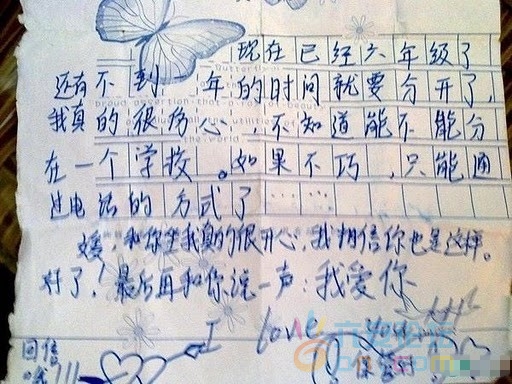 现在已经六年级了
还有不到一年的时间就要分开了，
我真的很伤心，不知道能不能分
在一个学校。如果不巧，只能通
过电话的方式了……
媛，和你坐我真的很开心，我相信你也是这样。
好了！最后再和你说一声：我爱你
I love you
回信
哦!!!